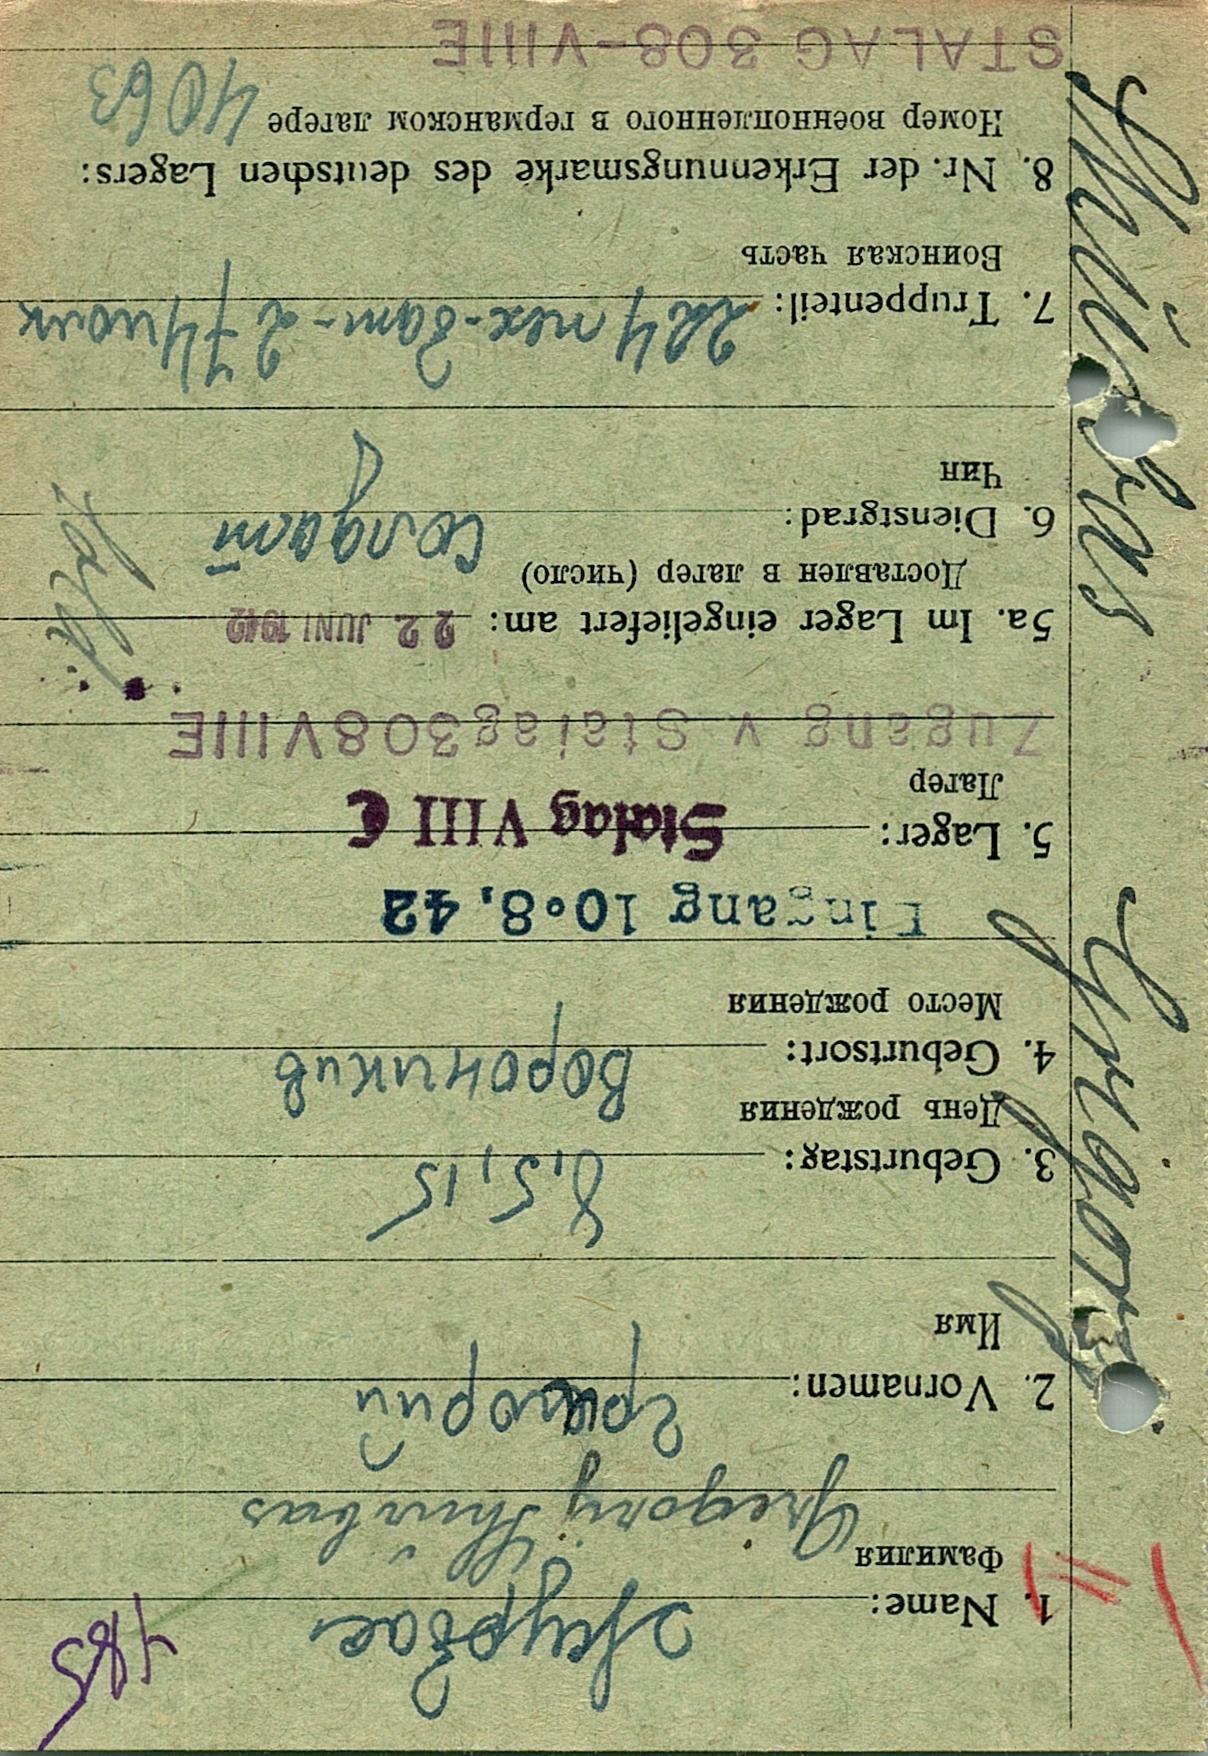 485
1. Name: Журбас
Фамилия
Grigory Shurbas
2. Vornamen: Григорий
Имя
3. Geburtstag: 8,5,15
День рождения
4. Geburtsort: Ворончикив
Место рождения
Eingang 10.8.42
5. Lager: Stalag VIII C
Лагер
Zugang v Stalag308VIIIE
5a. Im Lager eingeliefert am: 22 JUNI 1942
Доставлен в лагер (число)
6. Dienstgrad: солдат
Чин
7. Truppenteil: 224 пех-бат-274 полк
Воинская часть
8. Nr. der Erkennungsmarke des deutschen Lagers:
Номер военнопленного в германском лагере 4063
STALAG 308-VIIIE
Grigory Shurbas